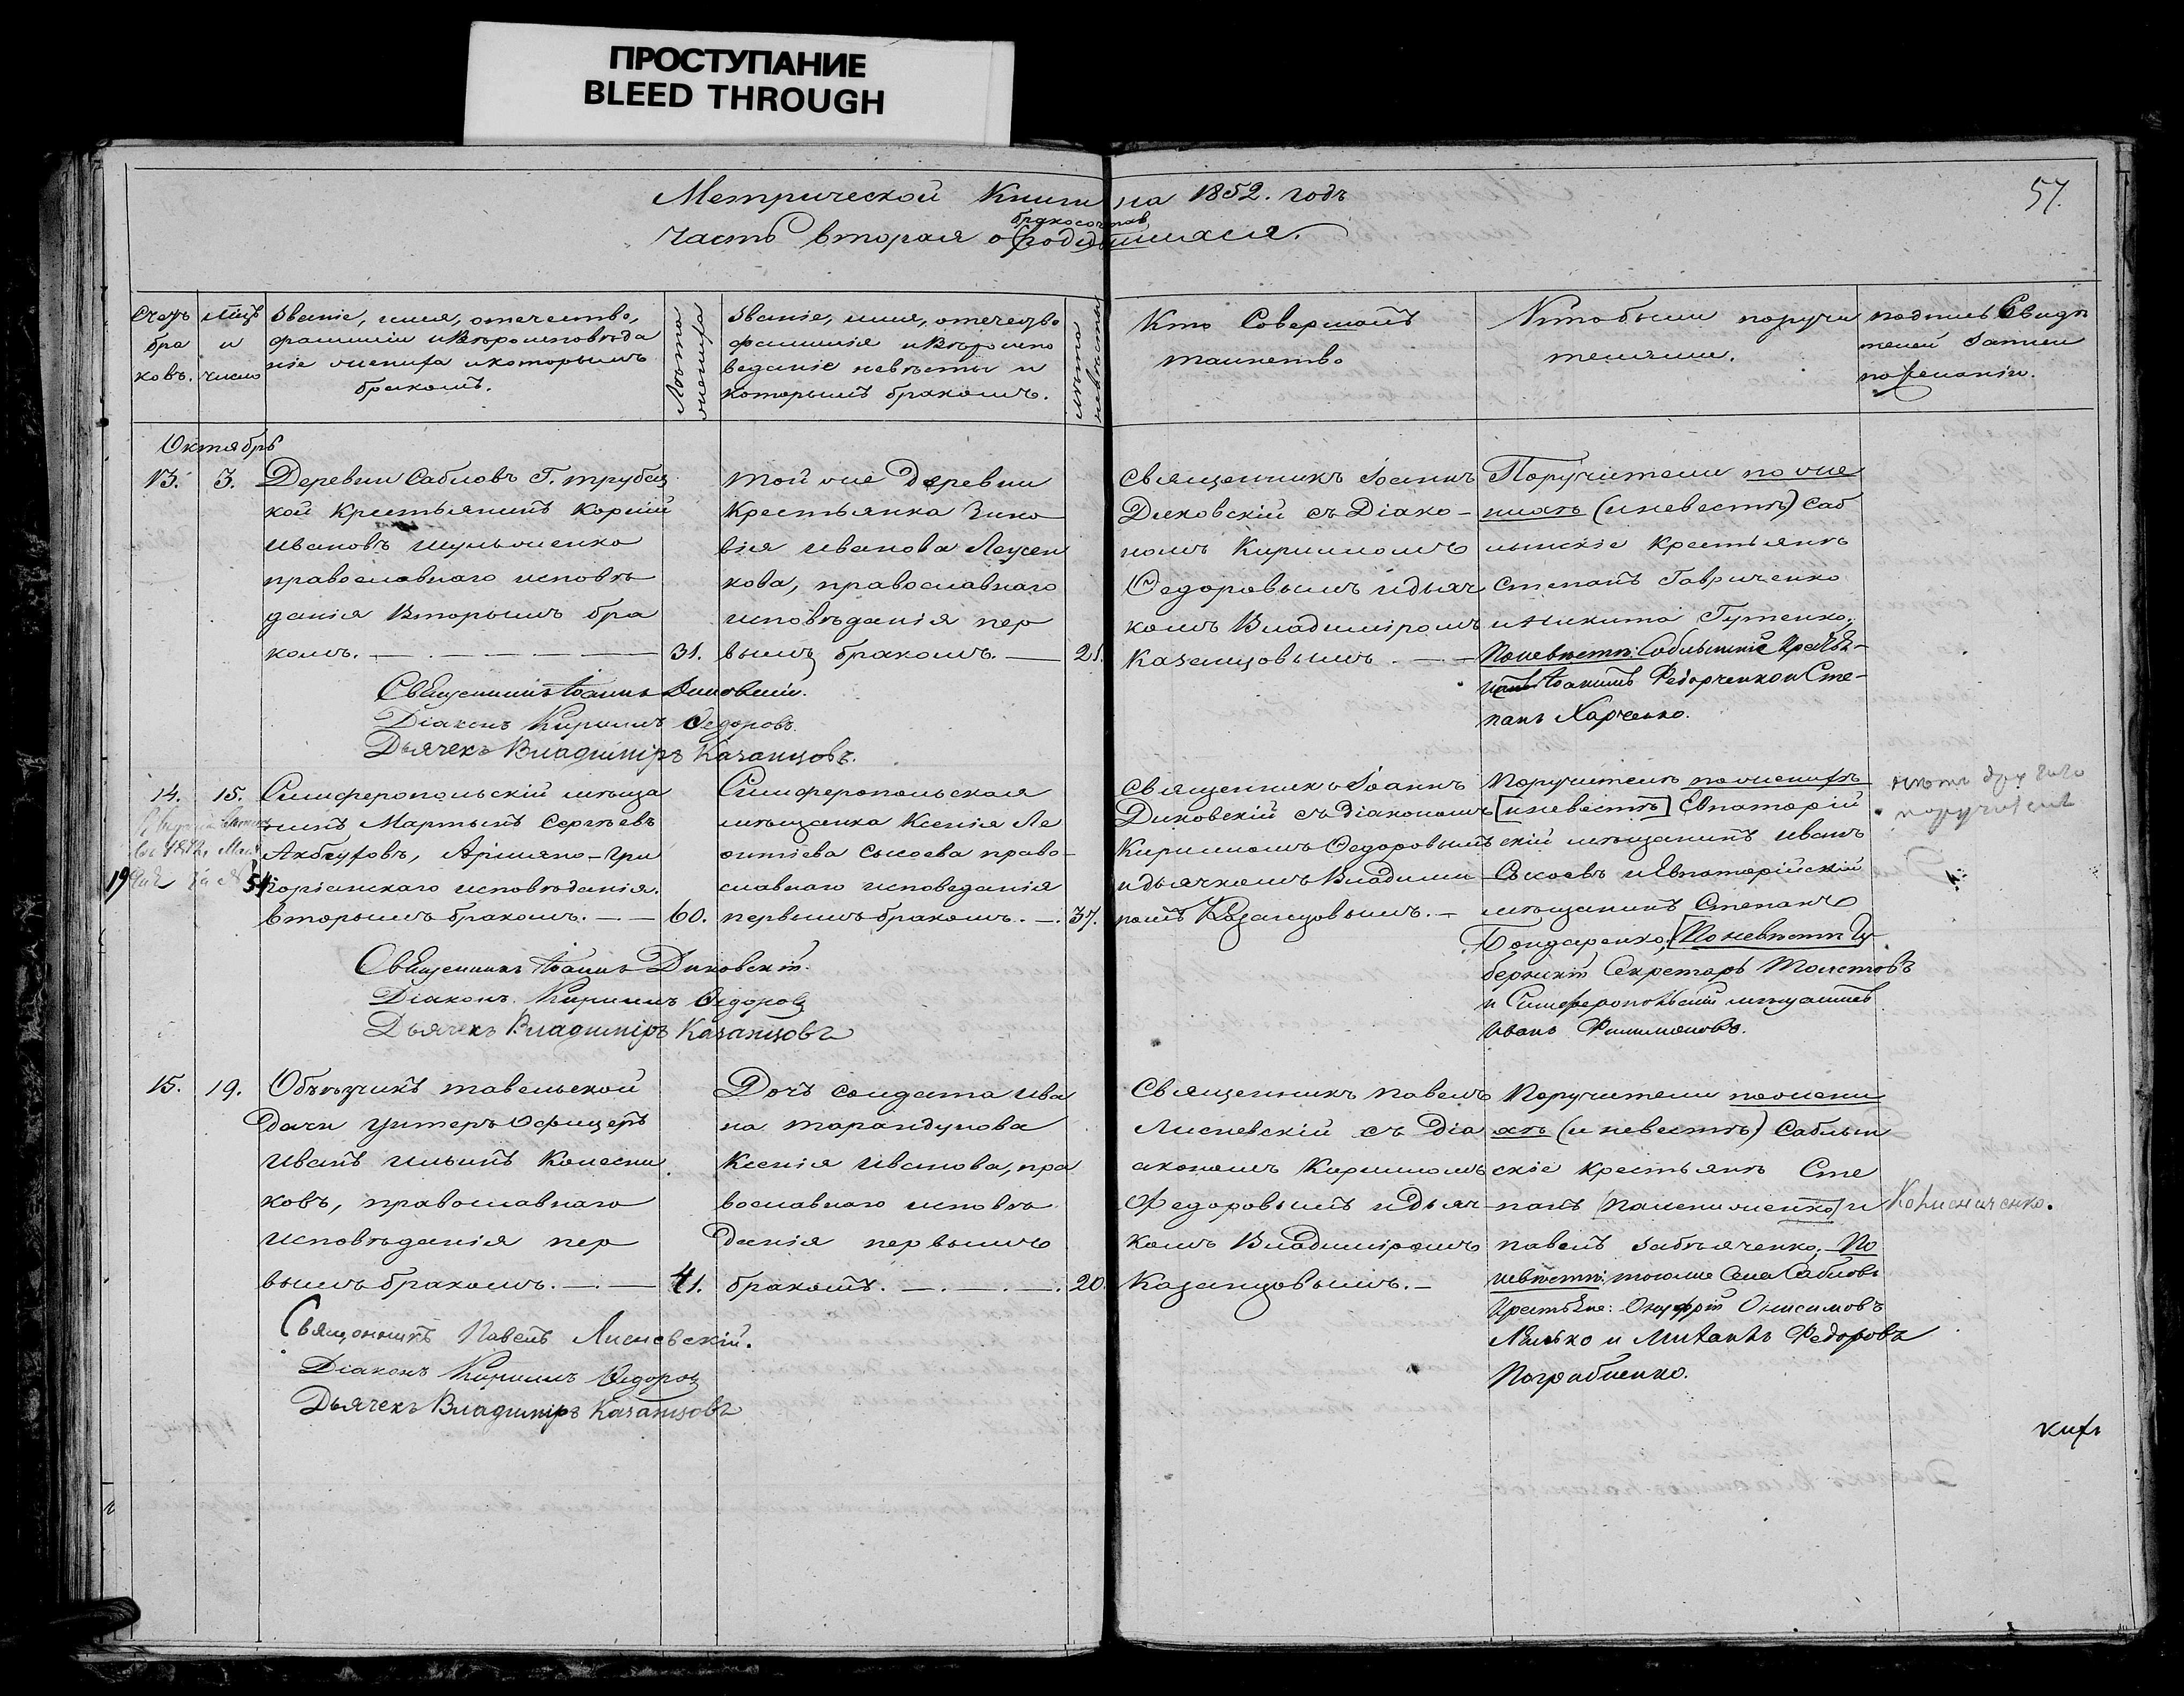 ПРОСТУПАНИЕ
BLEED THROUGH
57.
Метрической Книги на 1852. годъ
бракосочетав
Часть вторая о (родив)шихся.
Счетъ бра ковъ.
мцъ и число
Званіе, имя, отечество,
фамилія и вѣроисповѣда
ніе жениха и которымъ
бракомъ.
Лѣта жениха
Званіе, имя, отечезво
фамилія и вѣроиспо
веданіе невѣсты и
которымъ бракомъ.
лѣта невѣсты
Кто Совершалъ
таинство
Кто были поручи
телями.
подпись Свидѣ
телей записи
по желанію.
Октябрь
13. 3.
Деревни Сабловъ Г. трубец
кой Крестьянинъ Корній
Ивановъ
православнаго исповѣ
данія Вторымъ бра
комъ. 31.
той же Деревни
Крестьянка Зино
вія иванова
кова, православнаго
исповѣданія пер
вымъ бракомъ. 21.
Священникъ Іоаннъ
Диковскій съ Діако-
номъ Кирилломъ
Ѳедоровымъ и дьяч
комъ Владиміромъ
Казанцовымъ.
Поручители по же
нихѣ (и невестѣ) Саб
лынскіе крестьянѣ
Степанъ Гавриченко
и Никита Гутенко,
По невѣстѣ: Саблынскіе Крестья-
нинъ Іоакимъ Федорченко и Сте-
панъ Харченко.
Священникъ Іоаннъ Диковскій.
Діаконъ Кириллъ Ѳедоровъ.
Дьячекъ Владиміръ Казанцовъ.
14. 15.
19 54
Симферопольскій мѣща
нинъ Мартынъ Сергѣевъ
Акбеуфовъ, Армяно-Гри
горіанскаго исповѣданія.
вторымъ бракомъ. 60.
Симферопольская
мѣщанка Ксенія Ле
онтіева Сысоева право-
славнаго исповеданія
первымъ бракомъ. 37.
Священникъ Іоаннъ
Диковскій съ діакономъ
Кирилломъ Ѳедоровымъ
и дьячкомъ Владими
ромъ Казанцовымъ.
Поручители по женихѣ
[и невестѣ] Евпаторій
скій мѣщанинъ иванъ
Сысоевъ и Евпаторійскій
мѣщанинъ Степанъ
Бондаренко, [По невѣстѣ Гу-
бернскій Секретарь Толстовъ
и Симферопольскій мѣщанинъ
Иванъ Филимоновъ.
нѣтъ другаго
поручителя
Священникъ Іоаннъ Диковскій.
Діаконъ Кириллъ Ѳедоровъ
Дьячекъ Владиміръ Казанцовъ
15. 19.
Объѣзчикъ тавельской
Дачи унтеръ Офицеръ
Иванъ Ильинъ Колесни
ковъ, православнаго
исповѣданія пер
вымъ бракомъ. 41.
Дочь солдата ива
на
Ксенія Иванова, пра
вославнаго исповѣ
данія первымъ
бракомъ. 20.
Священникъ павелъ
Лисневскій съ Діа
акономъ Кирилломъ
Федоровымъ и Дьяч
комъ Владиміромъ
Казанцовымъ.
Поручители по жени
хѣ (и невестѣ) Саблын
скіе крестьянѣ Сте
панъ и
павелъ Забѣяченко. По
невѣстѣ: тогоже Села Сабловъ
Крестьяне: Онуфрій Онисимовъ
и Михаилъ Федоровъ
Пограбленко.
Священникъ Павелъ Лисневскій.
Діаконъ Кириллъ Ѳедоровъ
Дьячекъ Владиміръ Казанцовъ